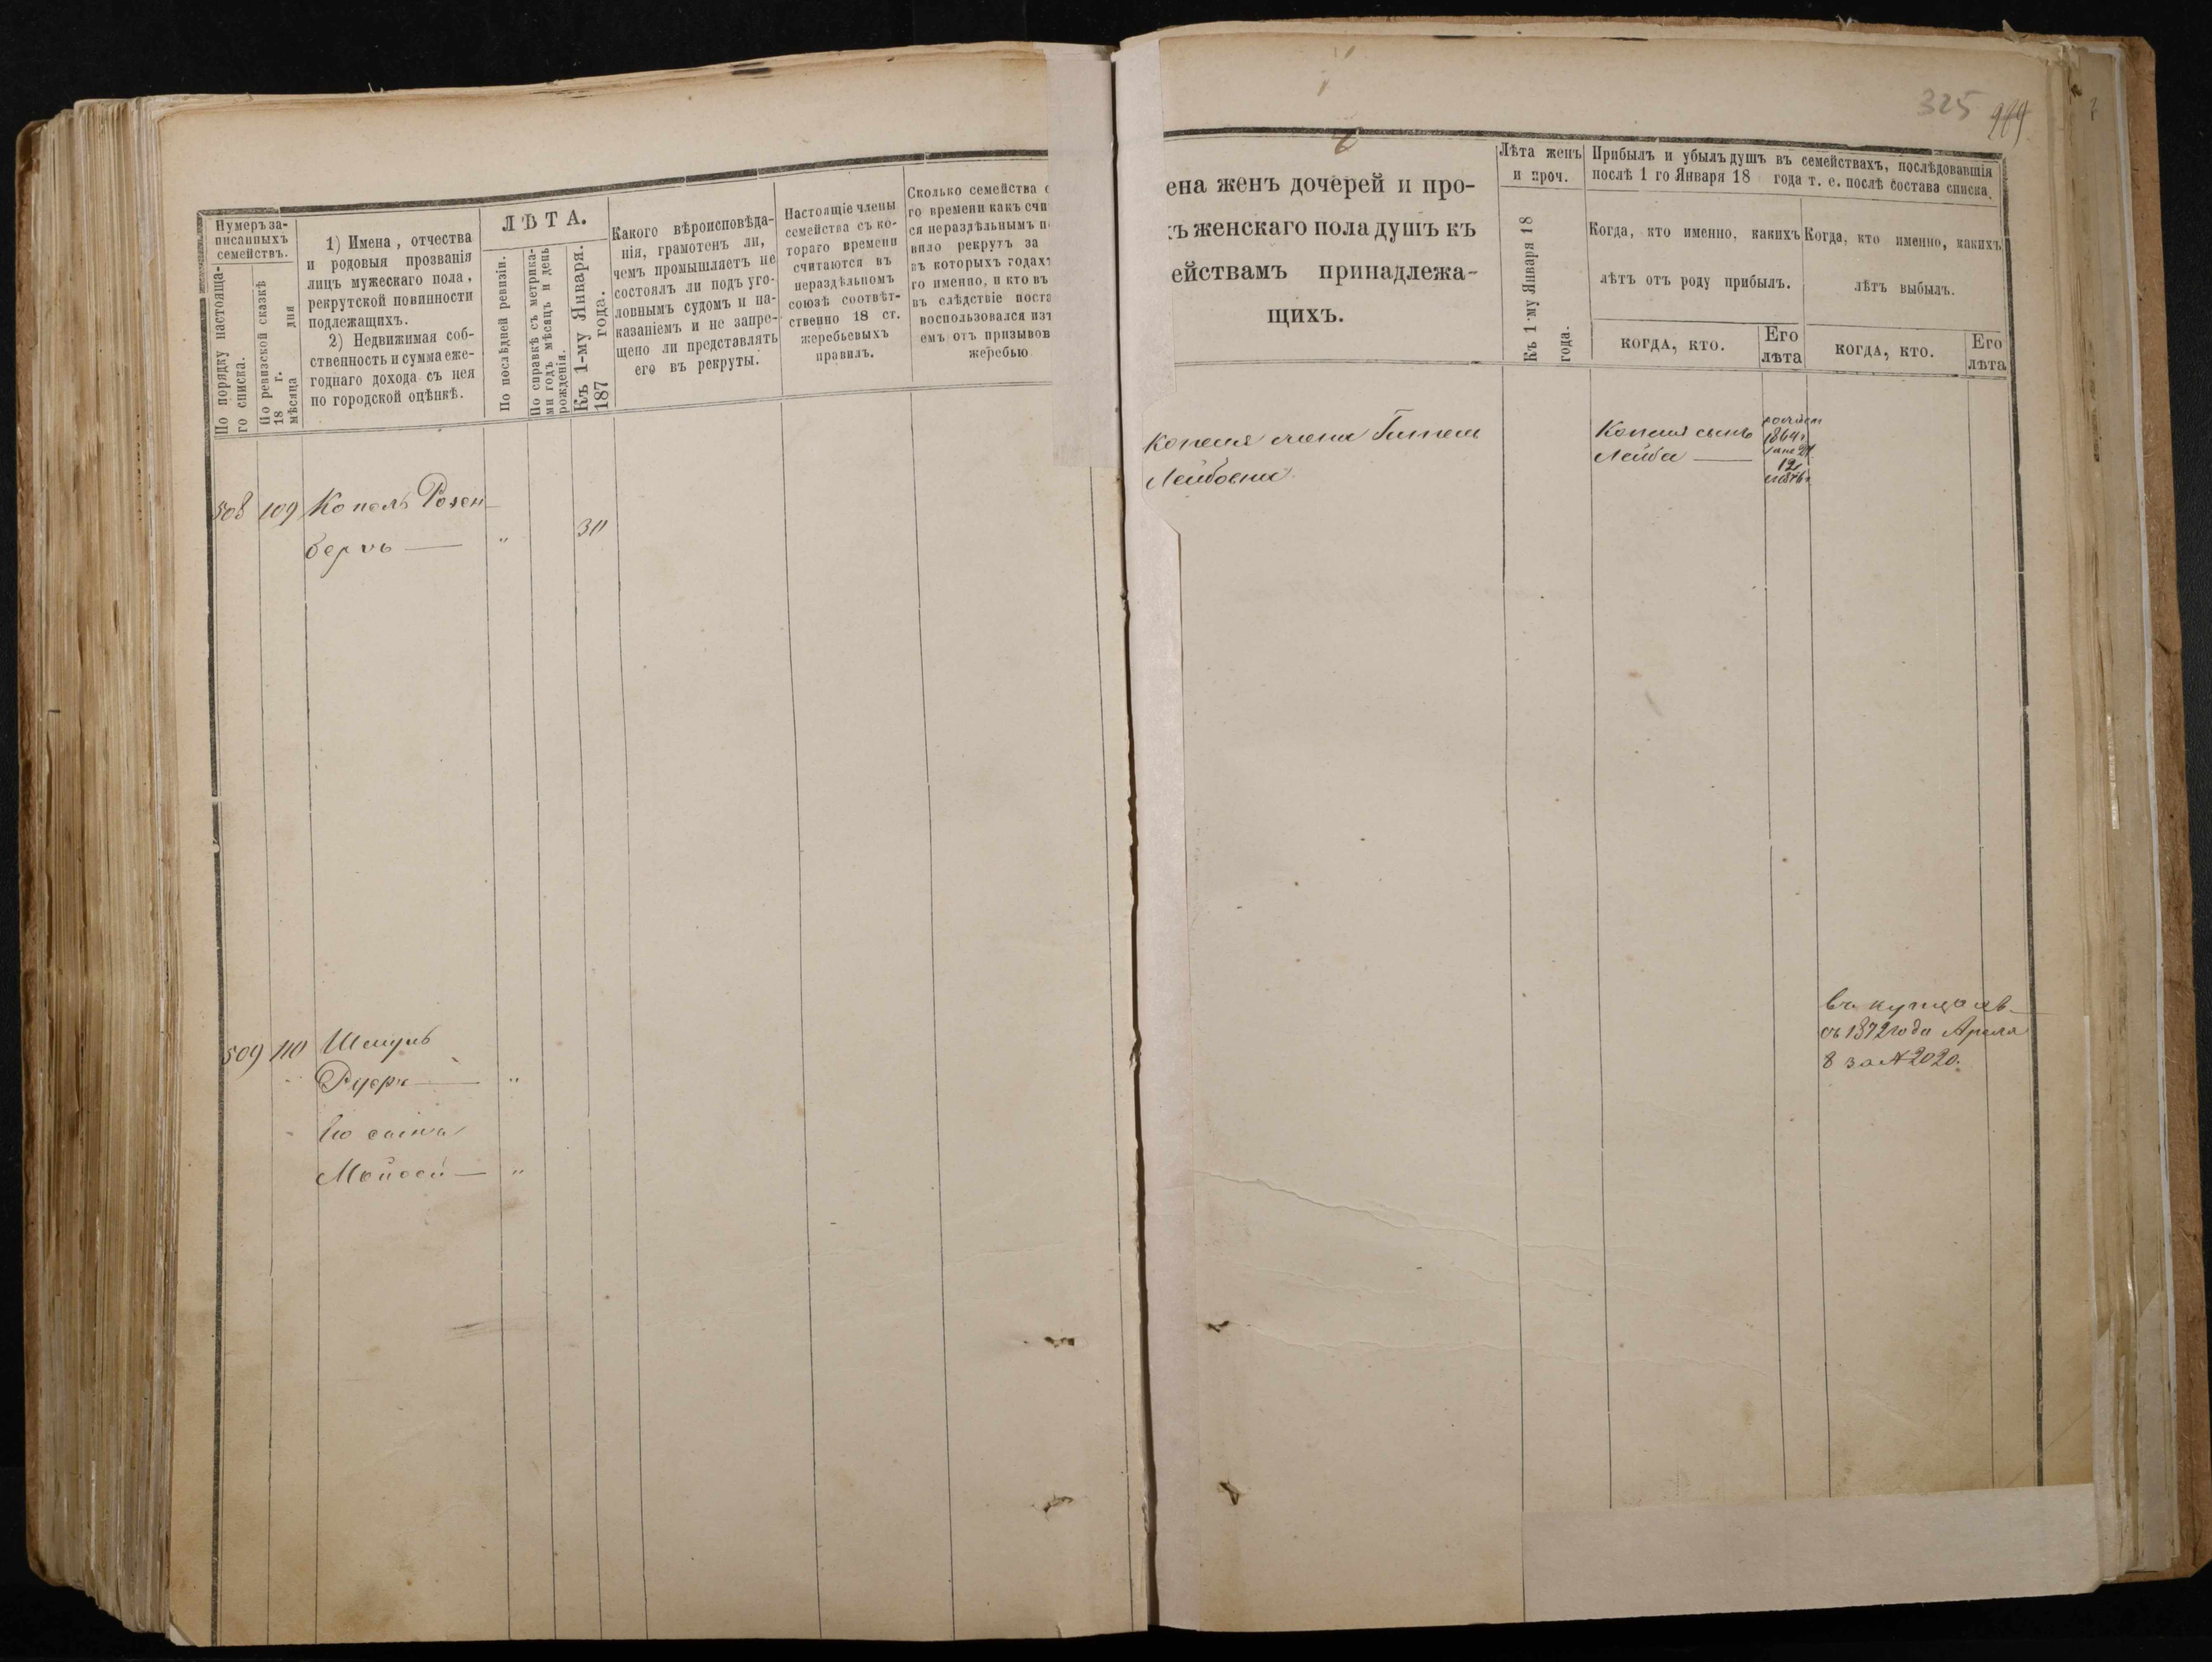 325
Нумеръ за-
писанныхъ
семействъ.
По порядку настояща-
го списка.
По ревизской сказкѣ
18 г.
мѣсяца дня
1) Имена, отчества
и родовыя прозванія
лицъ мужескаго пола,
рекрутской повинности
подлежащихъ.
2) Недвижимая соб-
ственность и сумма еже-
годнаго дохода съ нея
по городской оцѣнкѣ.
ЛѢТА.
По послѣдней ревизіи.
По справкѣ съ метрика-
ми годъ мѣсяцъ и день
рожденія.
Къ 1-му Января.
187 года.
Какого вѣроисповѣда-
нія, грамотенъ ли,
чемъ промышляетъ не
состоялъ ли подъ уго-
ловнымъ судомъ и на-
казаніемъ и не запре-
щено ли представлять
его въ рекруты.
Настоящіе члены
семейства съ ко-
тораго времени
считаются въ
нераздѣльномъ
союзѣ соотвѣт-
ственно 18 ст.
жеребьевыхъ
правилъ.
Сколько семейства с
го времени какъ счи
ся нераздѣльнымъ п
вило рекрутъ за
въ которыхъ годахъ
го именно, и кто въ
въ слѣдствіе поста
воспользовался изъ
емъ отъ призывов
жеребью
ена женъ дочерей и про-
ъ женскаго пола душъ къ
ействамъ принадлежа-
щихъ.
Лѣта женъ
и проч.
Къ 1-му Января 18
года.
Прибылъ и убылъ душъ въ семействахъ, послѣдовавшія
послѣ 1 го Января 18 года т. е. послѣ состава списка.
Когда, кто именно, какихъ
лѣтъ отъ роду прибылъ.
КОГДА, КТО.
Его
лѣта
Когда, кто именно, какихъ
лѣтъ выбылъ.
КОГДА, КТО.
Его
лѣта
508 109 Копель Розен-
бергъ — " 30
Копеля жена Гитель
Лейбовна
Копеля сынъ
Лейба —
1864 г.
509 110 Шмуль
— "
Его сынъ
Мойсей — "
съ 1872 года Апреля
8 за № 2020.